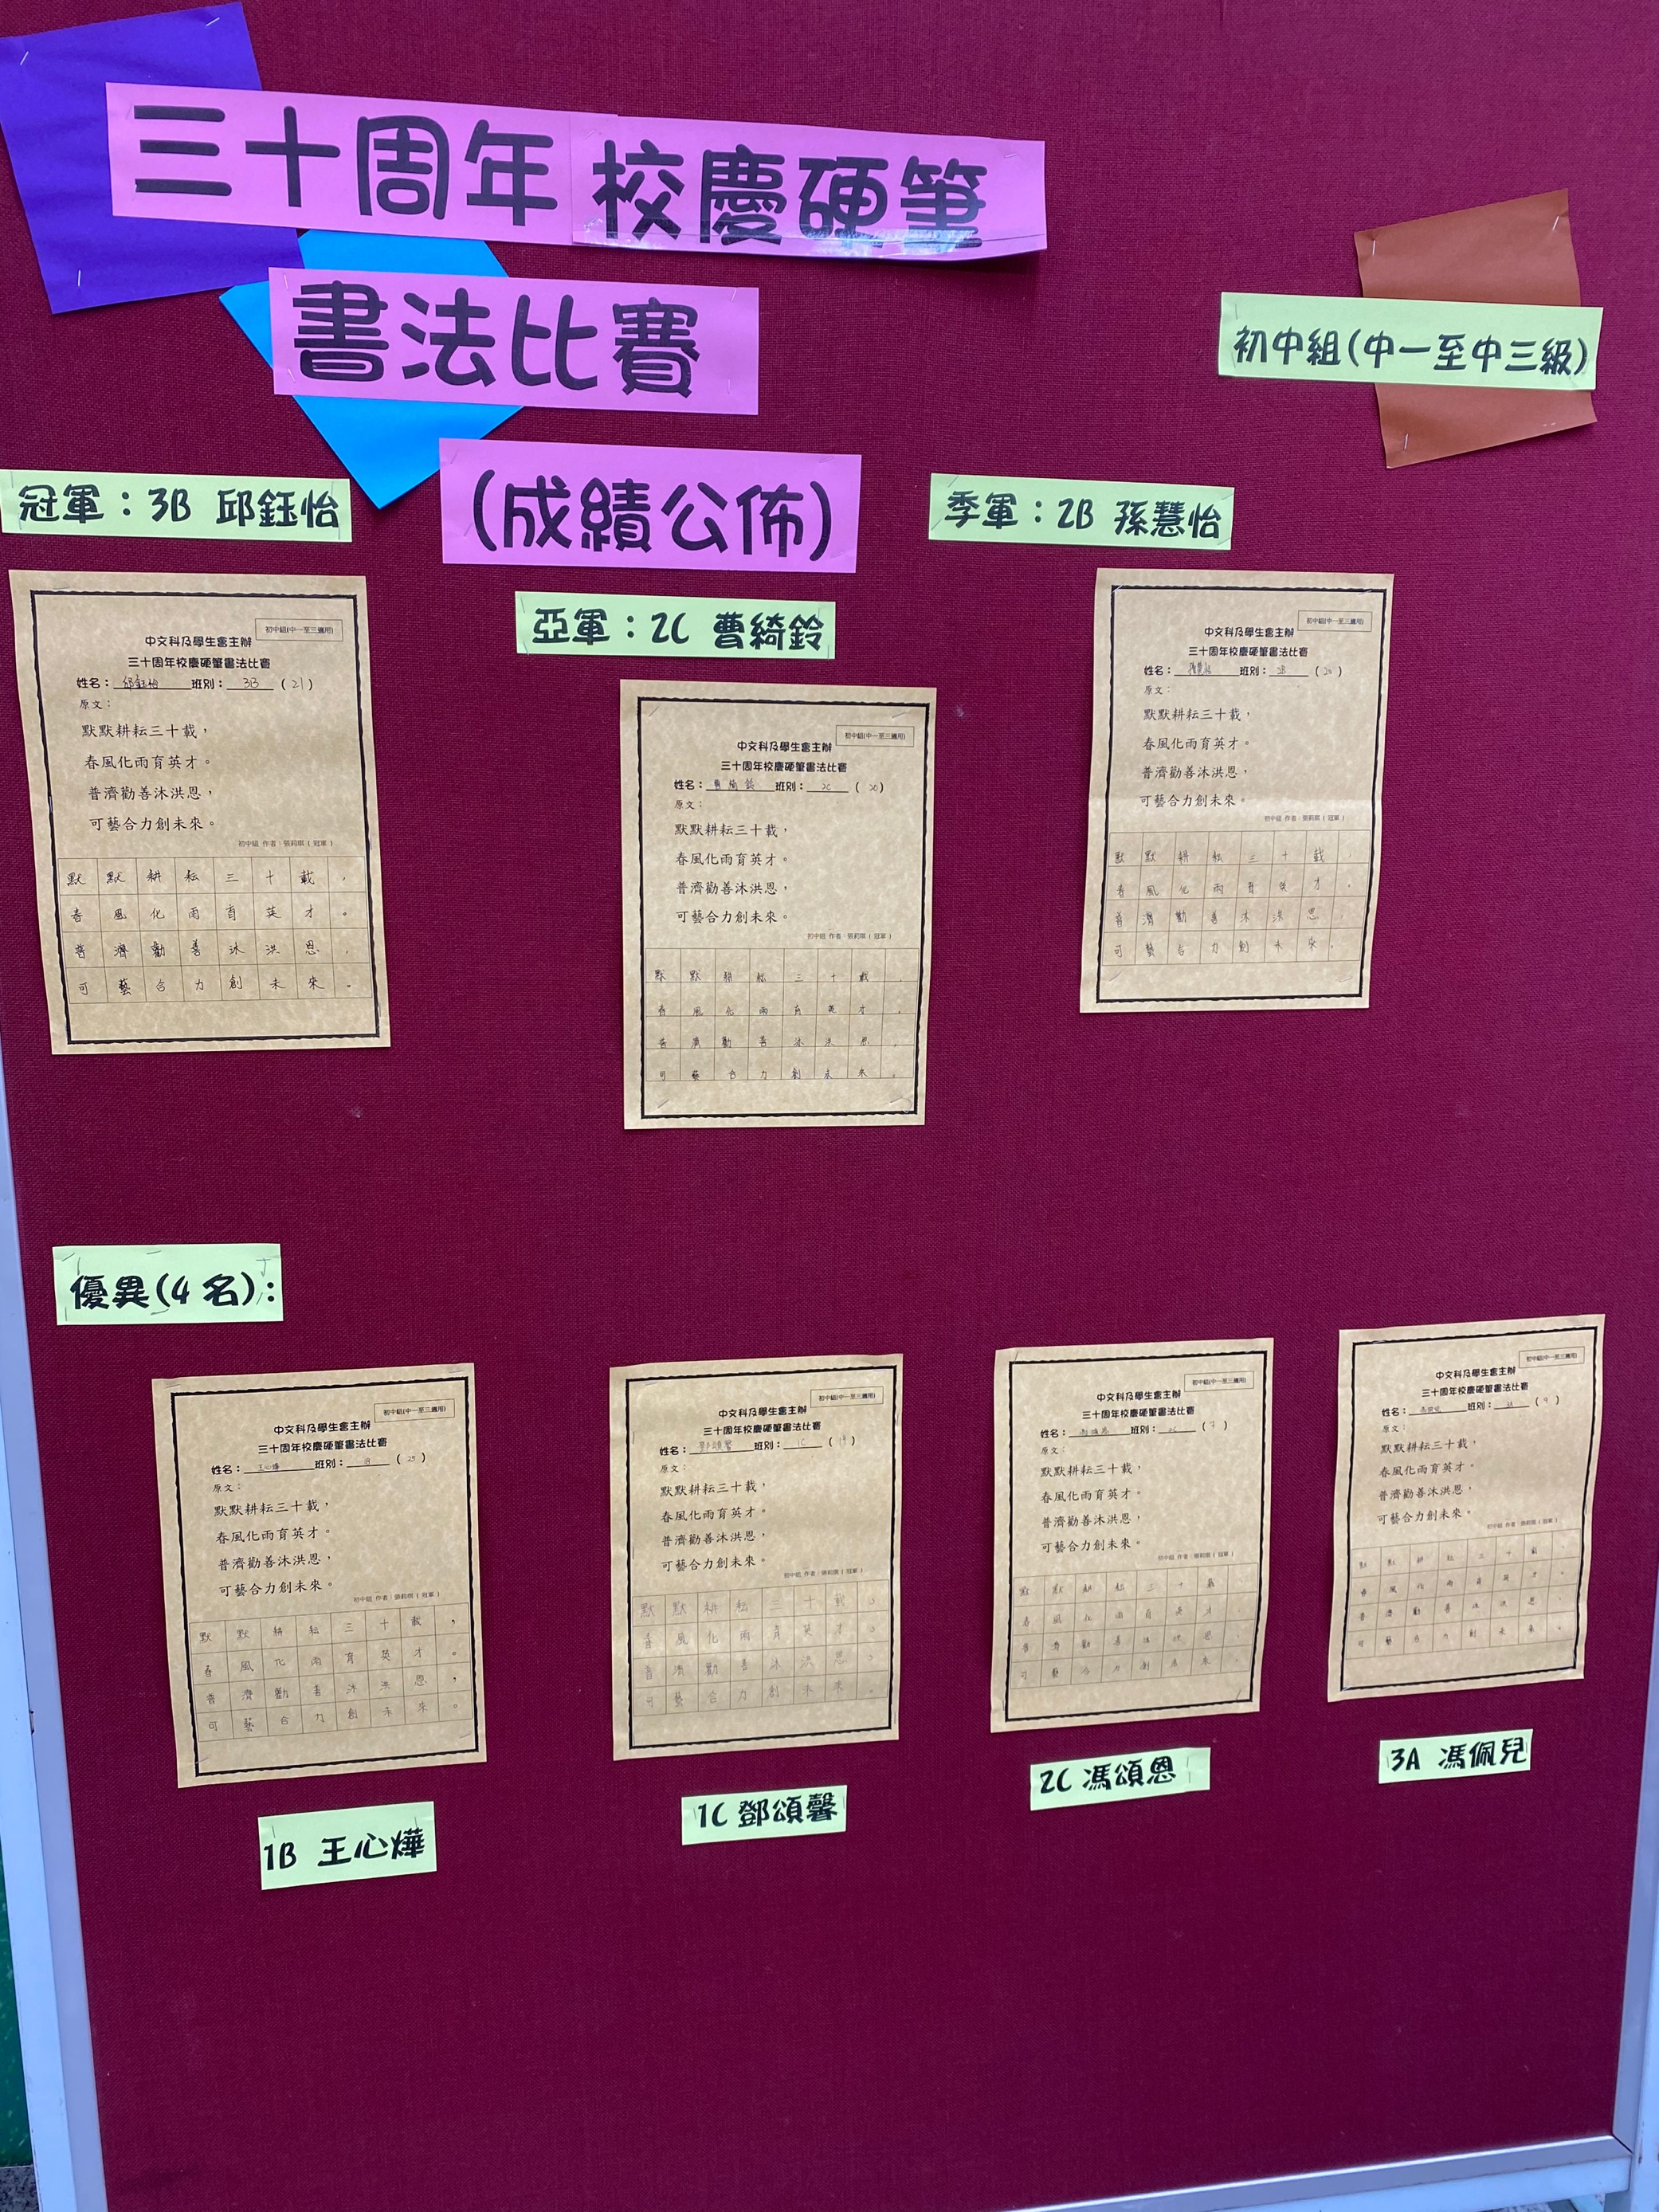 三十周年校慶硬筆
書法比賽
(成績公佈)
初中組(中一至中三級)
冠軍：3B 邱鈺怡
初中組(中一至三適用)
中文科及學生會主辦
三十周年校慶硬筆書法比賽
姓名：邱鈺怡 班別：3B (21)
原文：
默默耕耘三十載，
春風化雨育英才。
普濟勸善沐洪恩，
可藝合力創未來。
初中組 作者：張莉琪 ( 冠軍 )
默默耕耘三十載，
春風化雨育英才。
普濟勸善沐洪恩，
可藝合力創未來。
亞軍：2C 曹綺鈴
初中組(中一至三適用)
中文科及學生會主辦
三十周年校慶硬筆書法比賽
姓名：曹綺鈴 班別：2C (20)
原文：
默默耕耘三十載，
春風化雨育英才。
普濟勸善沐洪恩，
可藝合力創未來。
初中組 作者：張莉琪 ( 冠軍 )
默默耕耘三十載，
春風化雨育英才。
普濟勸善沐洪恩，
可藝合力創未來。
季軍：2B 孫慧怡
初中組(中一至三適用)
中文科及學生會主辦
三十周年校慶硬筆書法比賽
姓名：孫慧怡 班別：2B (20)
原文：
默默耕耘三十載，
春風化雨育英才。
普濟勸善沐洪恩，
可藝合力創未來。
初中組 作者：張莉琪 ( 冠軍 )
默默耕耘三十載，
春風化雨育英才。
普濟勸善沐洪恩，
可藝合力創未來。
優異(4名)：
初中組(中一至三適用)
中文科及學生會主辦
三十周年校慶硬筆書法比賽
姓名：王心燁 班別： (25)
原文：
默默耕耘三十載，
春風化雨育英才。
普濟勸善沐洪恩，
可藝合力創未來。
初中組 作者：張莉琪 ( 冠軍 )
默默耕耘三十載，
春風化雨育英才。
普濟勸善沐洪恩，
可藝合力創未來。
1B 王心燁
初中組(中一至三適用)
中文科及學生會主辦
三十周年校慶硬筆書法比賽
姓名：鄧頌馨 班別：1C
原文：
默默耕耘三十載，
春風化雨育英才。
普濟勸善沐洪恩，
可藝合力創未來。
初中組 作者：張莉琪 ( 冠軍 )
默默耕耘三十載，
春風化雨育英才。
普濟勸善沐洪恩，
可藝合力創未來。
1C 鄧頌馨
初中組(中一至三適用)
中文科及學生會主辦
三十周年校慶硬筆書法比賽
姓名：馮頌恩 班別：2C
原文：
默默耕耘三十載，
春風化雨育英才。
普濟勸善沐洪恩，
可藝合力創未來。
初中組 作者：張莉琪 ( 冠軍 )
默默耕耘三十載，
春風化雨育英才。
普濟勸善沐洪恩，
可藝合力創未來。
2C 馮頌恩
初中組(中一至三適用)
中文科及學生會主辦
三十周年校慶硬筆書法比賽
姓名：馮佩兒 班別：3A (9)
原文：
默默耕耘三十載，
春風化雨育英才。
普濟勸善沐洪恩，
可藝合力創未來。
初中組 作者：張莉琪 ( 冠軍 )
默默耕耘三十載，
春風化雨育英才。
普濟勸善沐洪恩，
可藝合力創未來。
3A 馮佩兒